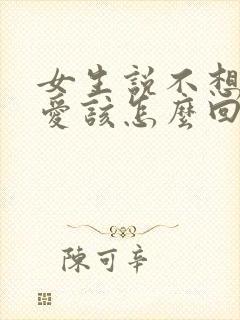 女生説不想
愛該怎麼回
陳可辛